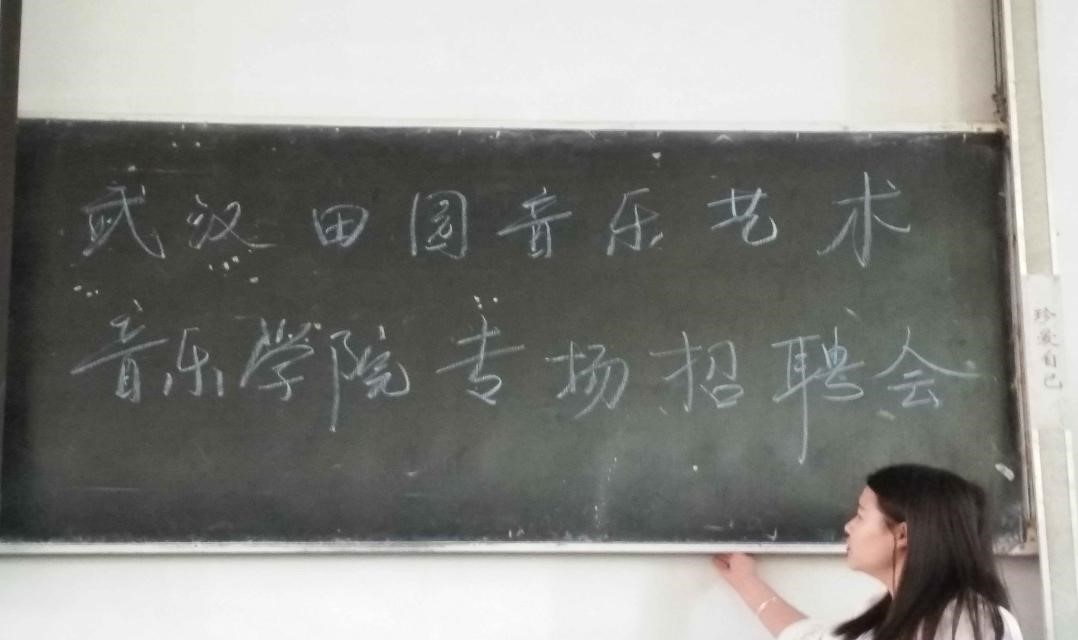 武汉田园音乐艺术
音乐学院专场招聘会
珍爱自己